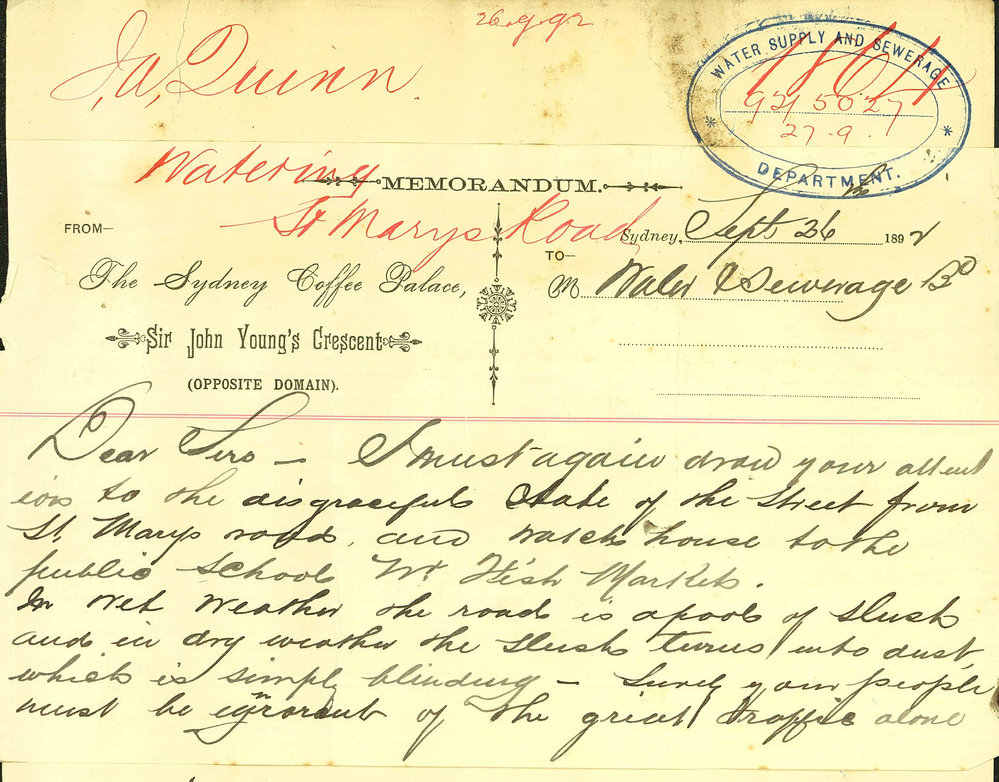 26.9.92
J, W, Quinn.
WATER SUPPLY AND SEWERAGE
921 5027
27.9.
DEPARTMENT.
Watering
MEMORANDUM.
St Marys Road
FROM—
Sydney, Sept 26th 1892
TO—
The Sydney Coffee Palace,
M Water & Sewerage Bd
Sir John Young's Crescent
(OPPOSITE DOMAIN).
Dear Sirs — I must again draw your attent
ion to the disgraceful state of the street from
St. Marys road, and watch house to the
public school Nr Fish Markets.
In wet weather the road is a pool of slush
and in dry weather the slush turns into dust,
which is simply blinding — Surely your people
must be ignorant of the great traffic alone